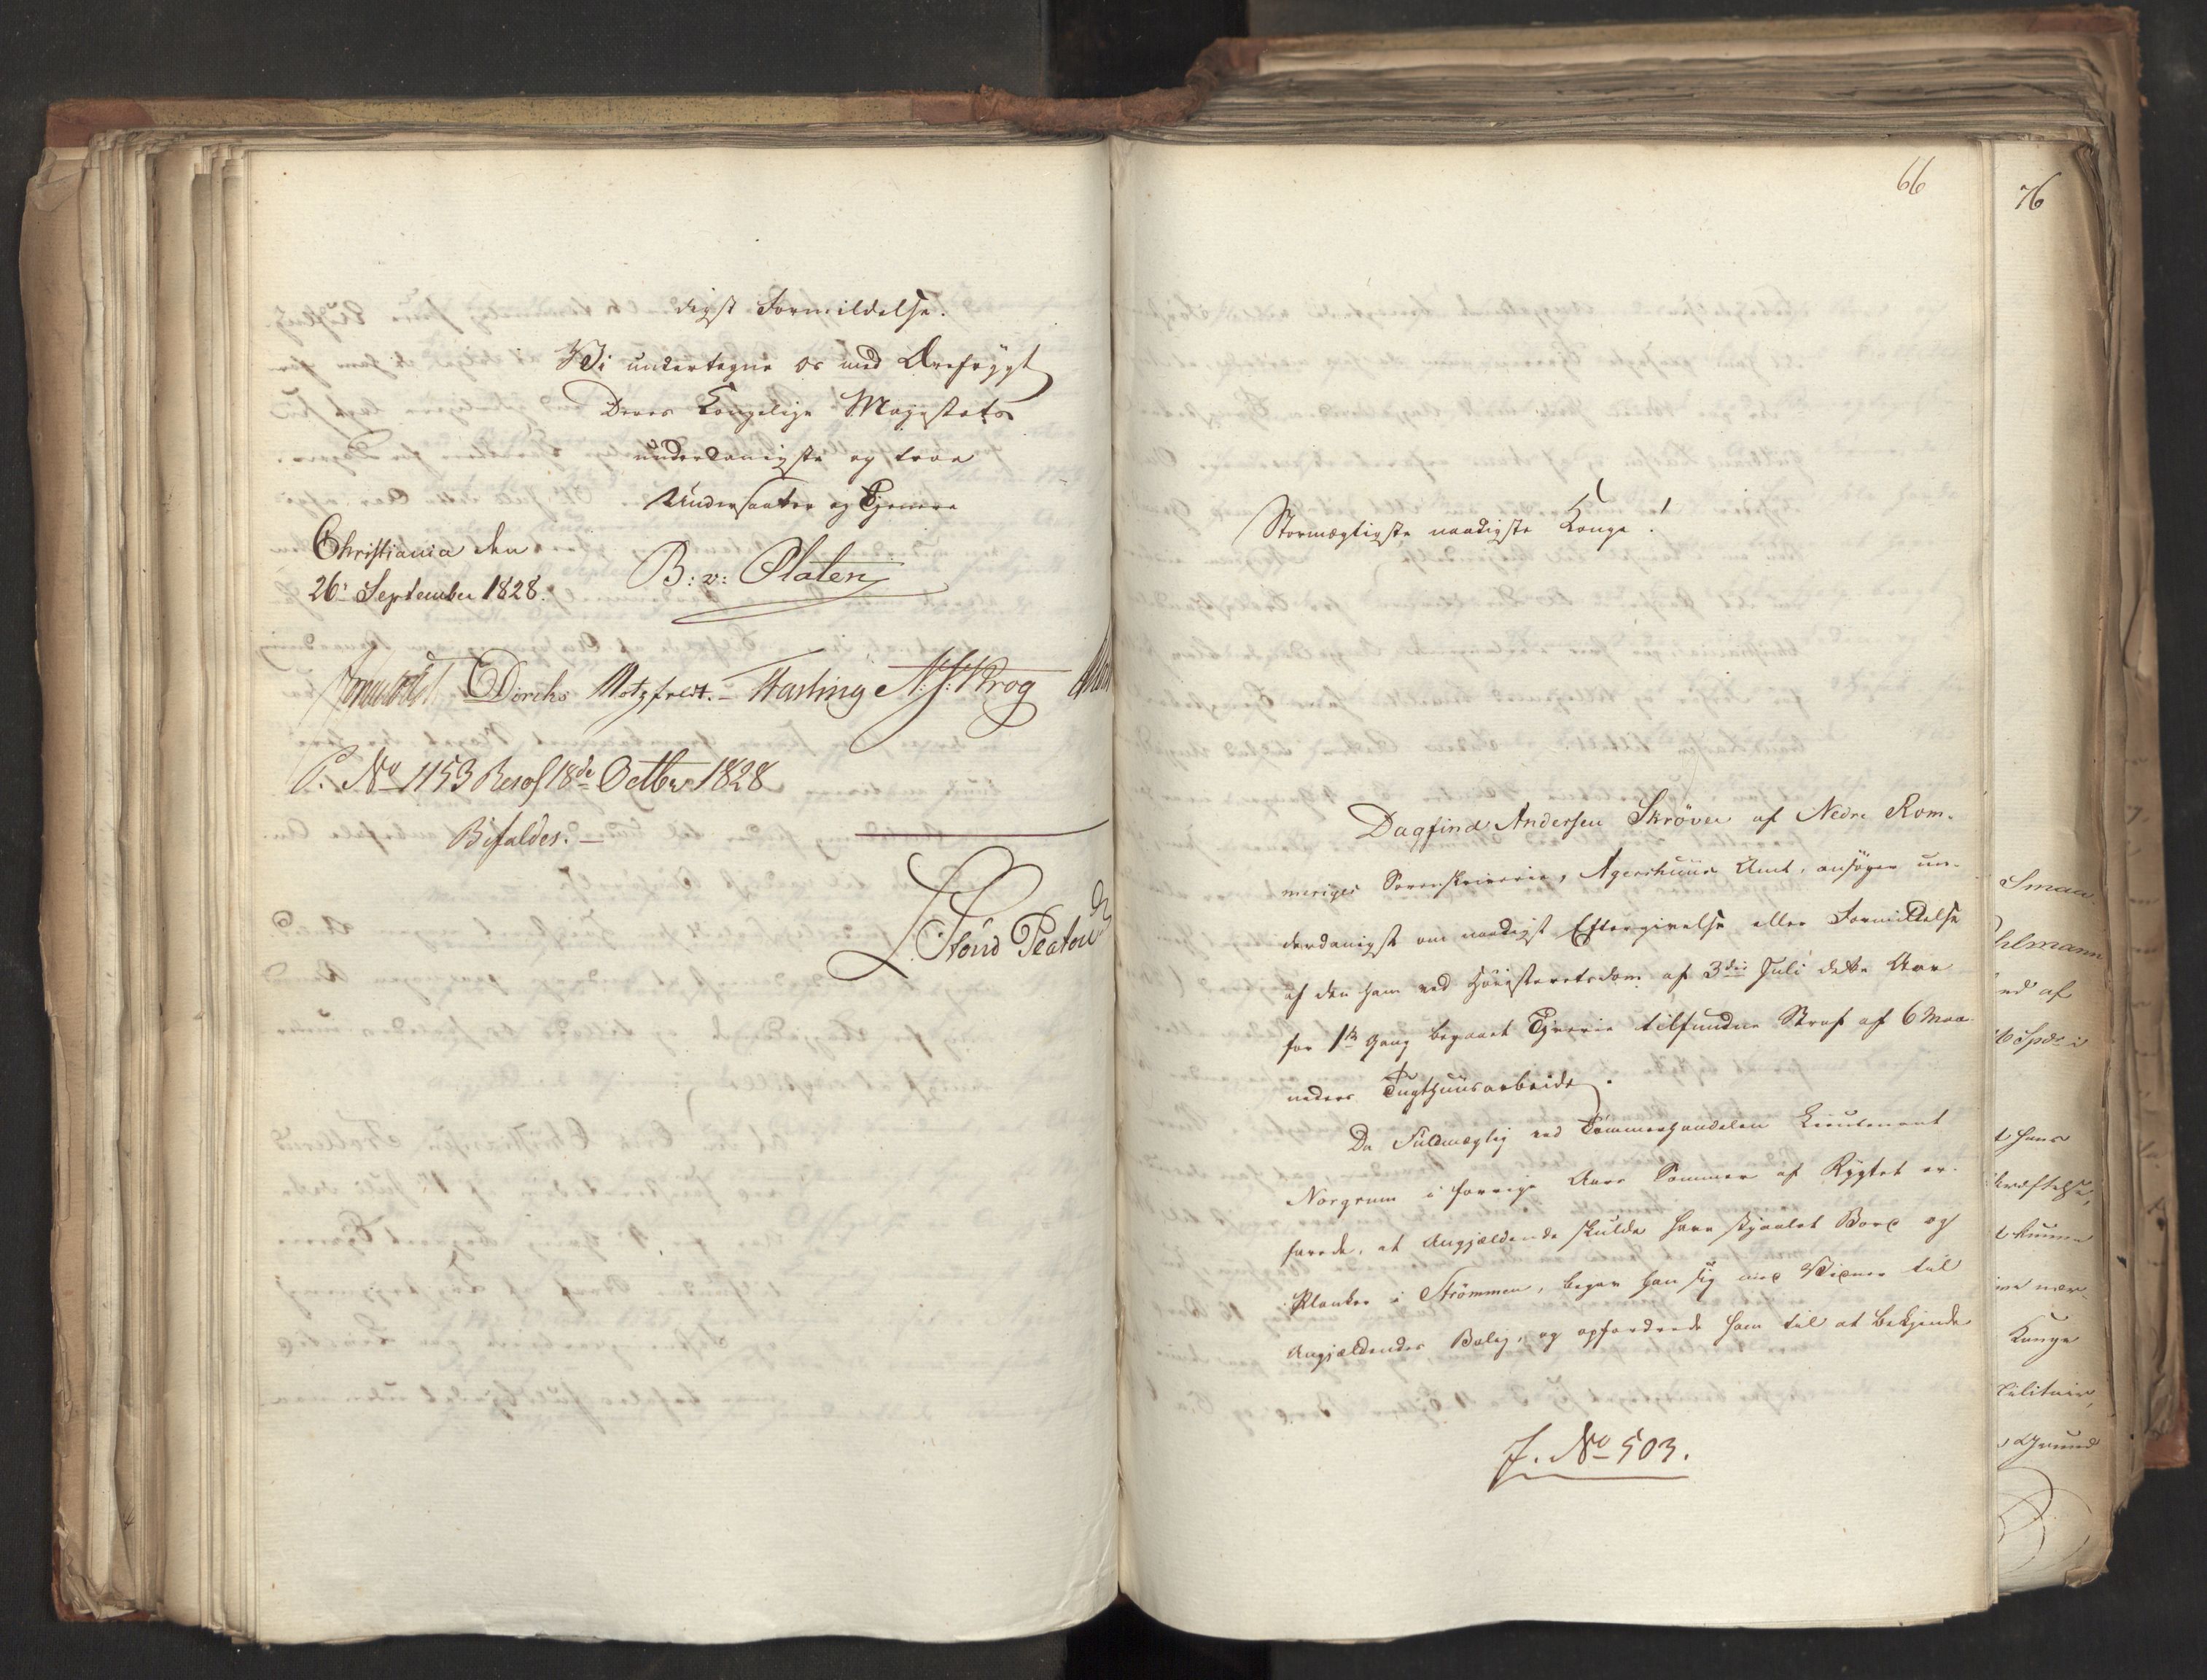 digst Formildelse.
Vi undertegne os med Ærefrygt
Deres Kongelige Majestæts
underdanigste og troe
Undersaatter og Tjenere
Christiania den
26de September 1828.
B: v: Platen
Diriks Motzfeldt. Fasting N. J. Krog
P. No 1153 Resol 18de Octbr 1828
Bifaldes. —
66
Stormægtigste naadigste Konge!
Dagfind Andersen Skrøver af Nedre Rom-
meriges Sorenskriverie, Agershuus Amt, ansøger un-
derdanigst om naadigst Eftergivelse eller Formildelse
af den ham ved Høiesteretsdom af 3die Juli dette Aar
for 1ste Gang begaaet Tyverie tilfundne Straf af 6 Maa-
neders Tugthuusarbeide.
Da Fuldmægtig ved Tømmerhandelen Lieutenant
Norgrum i forrige Aars Sommer af Rygtet er-
farede, at Angjældende skulde have stjaalet Bord og
Planker i Strømmen, begav han sig med Vidner til
Angjældendes Bolig, og opfordrede ham til at bekjende
J. No 503.
76
Smaa
hlmann
nd af
16 Spd i
t hans
kræftelse,
t kunne
ine nær-
Konge
Militair,
Grund